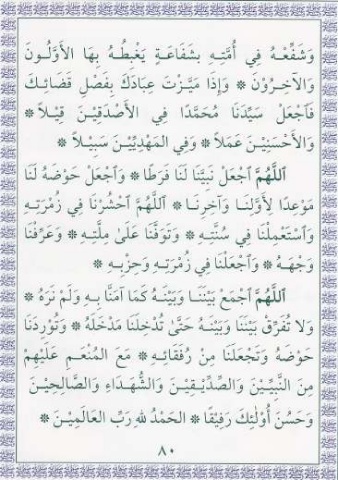 وَشَفِّعْهُ فِي أُمَّتِهِ بِشَفَاعَةٍ يَغْبِطُهُ بِهَا الأَوَّلُونَ
وَالآخِرُونَ ❊ وَإِذَا مَيَّزْتَ عِبَادَكَ بِفَصْلِ قَضَائِكَ
فَٱجْعَلْ سَيِّدَنَا مُحَمَّدًا فِي الأَصْدَقِينَ قِيْلاً ❊
وَالأَحْسَنِيْنَ عَمَلاً ❊ وَفِي المَهْدِيِّيْنَ سَبِيْلاً ❊
اَللَّهُمَّ ٱجْعَلْ نَبِيَّنَا لَنَا فَرَطًا ❊ وَٱجْعَلْ حَوْضَهُ لَنَا
مَوْعِدًا لِأَوَّلِنَا وَآخِرِنَا ❊ اَللَّهُمَّ ٱحْشُرْنَا فِي زُمْرَتِهِ
وَٱسْتَعْمِلْنَا فِي سُنَّتِهِ ❊ وَتَوَفَّنَا عَلَىٰ مِلَّتِهِ ❊ وَعَرِّفْنَا
وَجْهَهُ ❊ وَٱجْعَلْنَا فِي زُمْرَتِهِ وَحِزْبِهِ ❊
اَللَّهُمَّ ٱجْمَعْ بَيْنَنَا وَبَيْنَهُ كَمَا آمَنَّا بِهِ وَلَمْ نَرَهُ ❊
وَلَا تُفَرِّقْ بَيْنَنَا وَبَيْنَهُ حَتَّىٰ تُدْخِلَنَا مَدْخَلَهُ ❊ وَتُورِدَنَا
حَوْضَهُ وَتَجْعَلَنَا مِنْ رُفَقَائِهِ ❊ مَعَ المُنْعَمِ عَلَيْهِمْ
مِنَ النَّبِيِّيْنَ وَالصِّدِّيْقِيْنَ وَالشُّهَدَاءِ وَالصَّالِحِيْنَ
وَحَسُنَ أُوْلَٰئِكَ رَفِيْقًا ❊ الحَمْدُ لِلهِ رَبِّ العَالَمِيْنَ ❊
٨٠